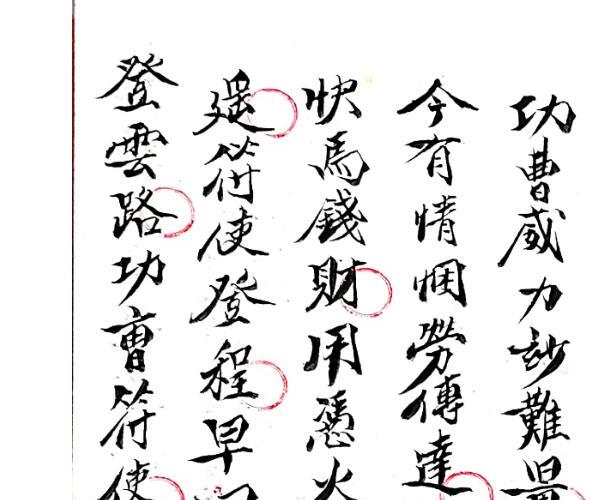 功曹威力妙難
今有情悃勞傳達
快馬錢財用憑火
遥符使登程早
登雲路功曹符使